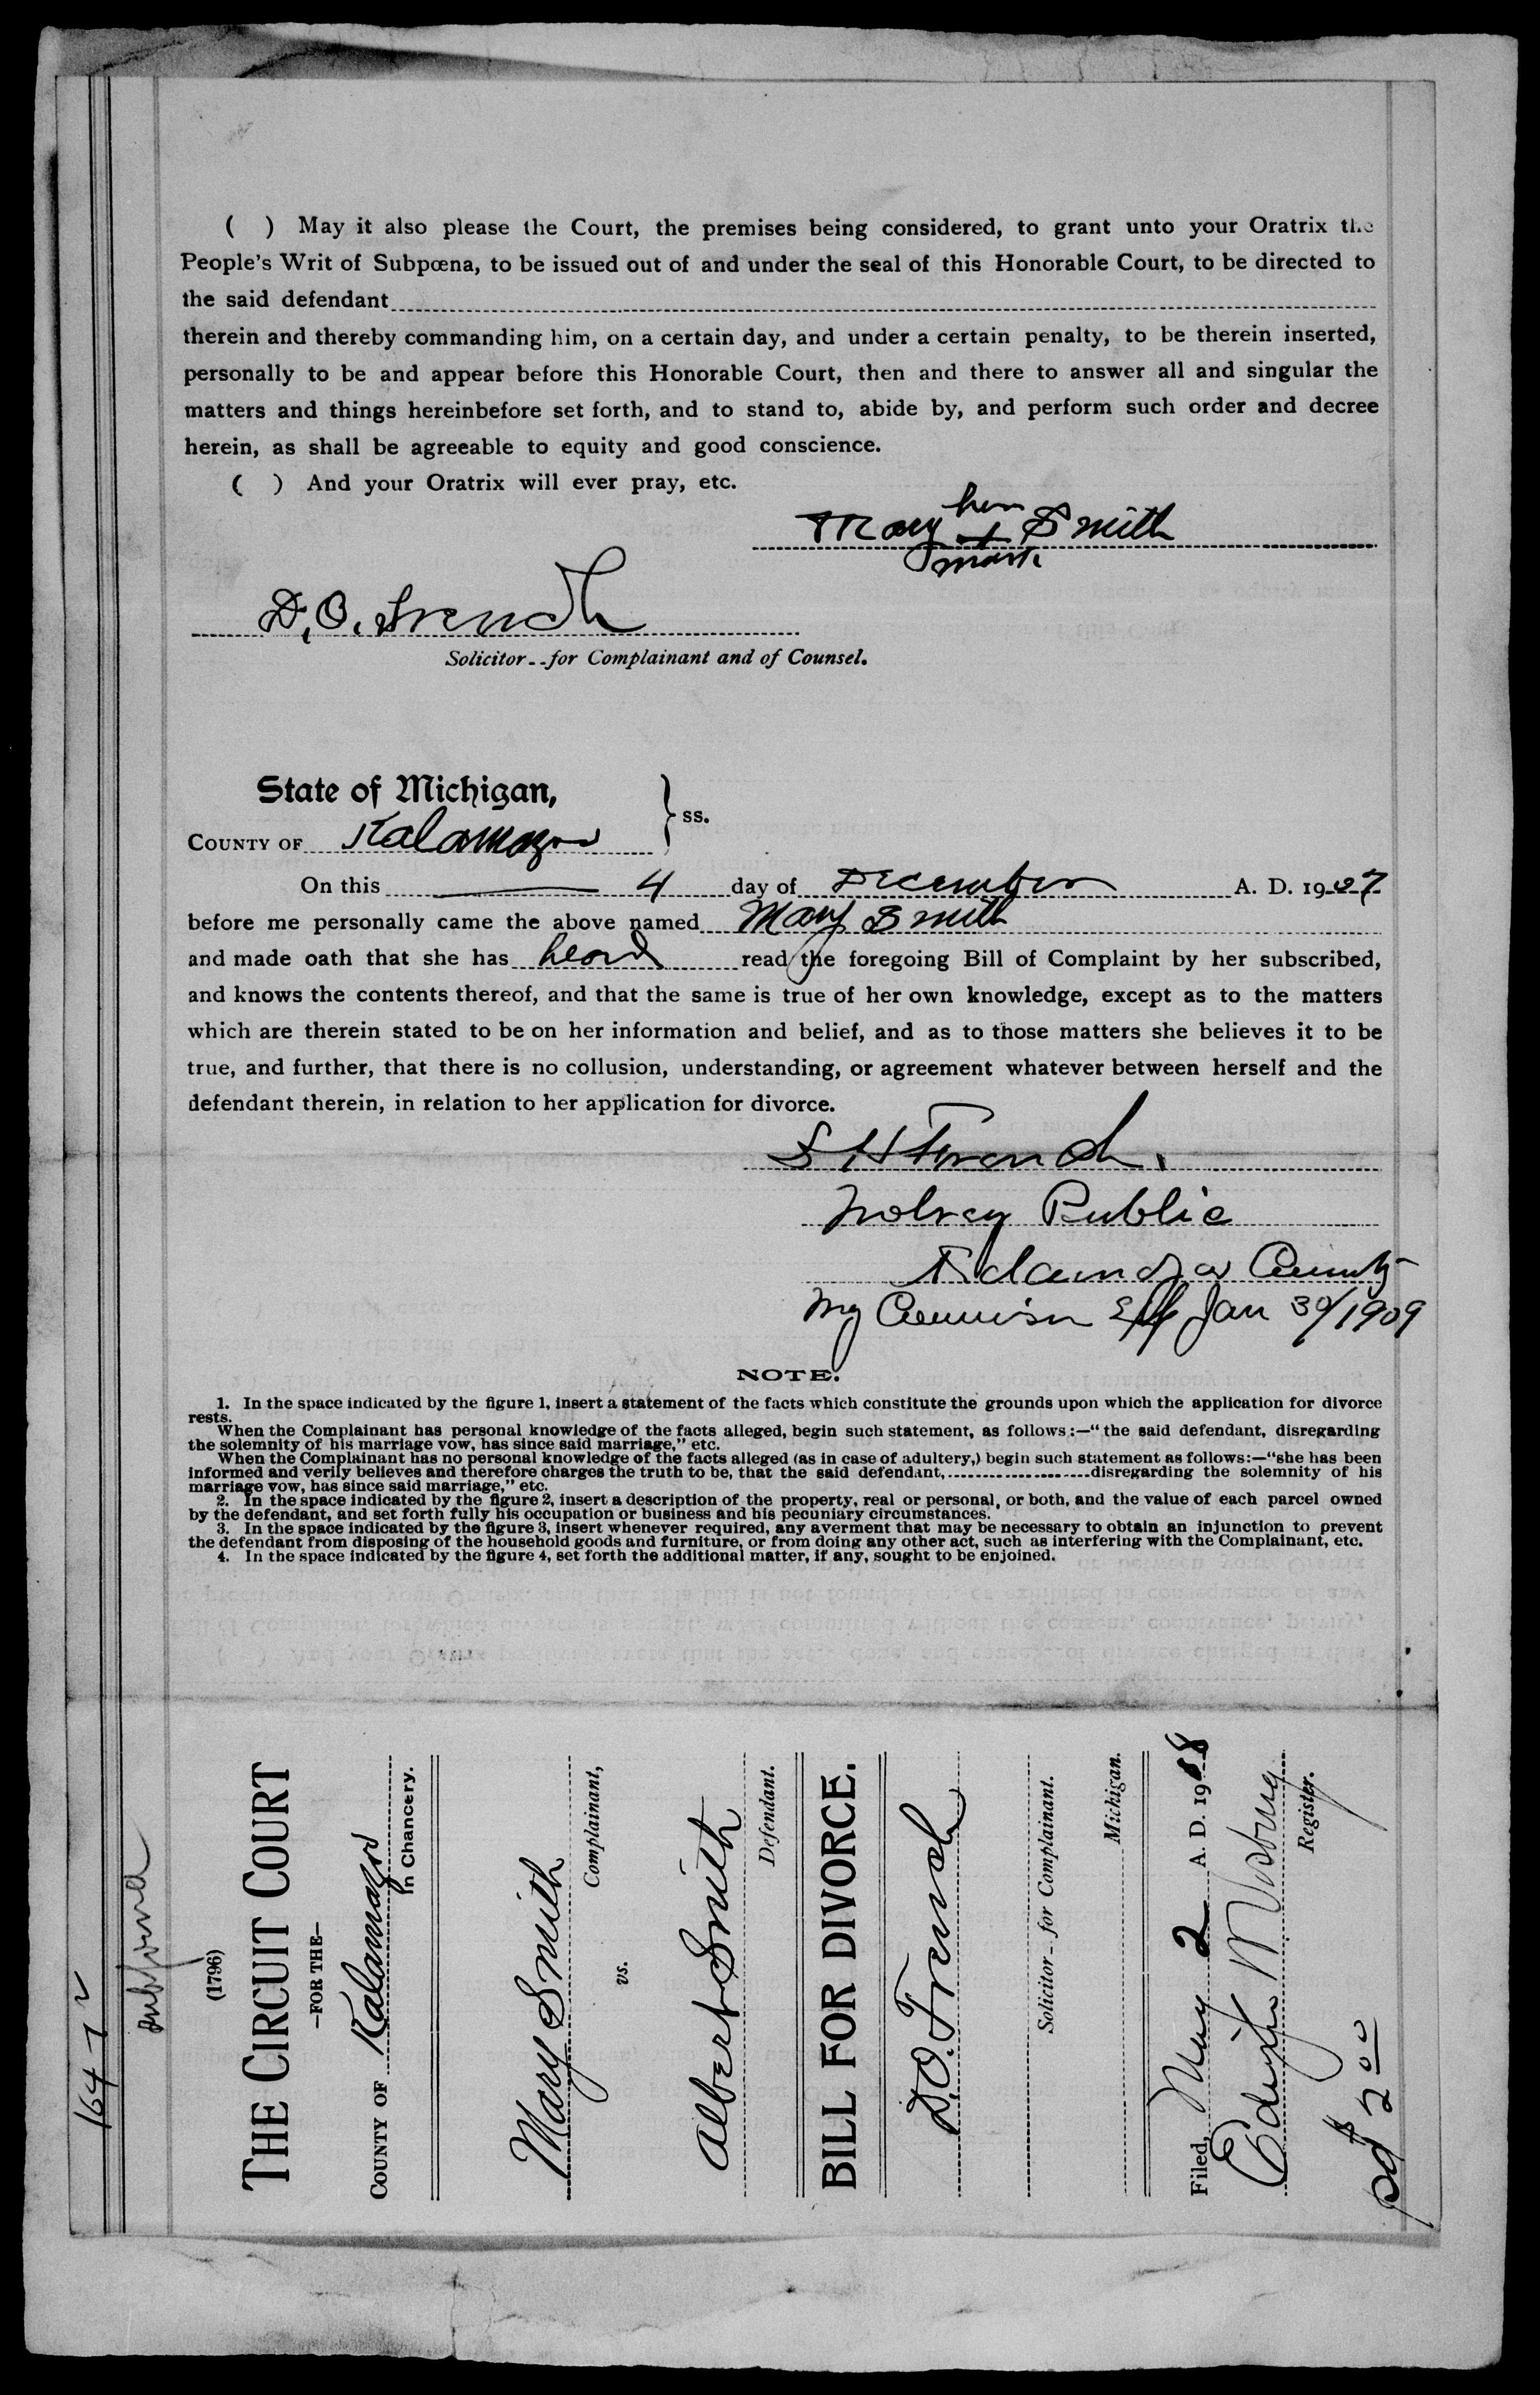 ( ) May it also please the Court, the premises being considered, to grant unto your Oratrix the
People's Writ of Subpœna, to be issued out of and under the seal of this Honorable Court, to be directed to
the said defendant
therein and thereby commanding him, on a certain day, and under a certain penalty, to be therein inserted,
personally to be and appear before this Honorable Court, then and there to answer all and singular the
matters and things hereinbefore set forth, and to stand to, abide by, and perform such order and decree
herein, as shall be agreeable to equity and good conscience.
( ) And your Oratrix will ever pray, etc.
her
Mary + Smith
mark
D. O. French
Solicitor--for Complainant and of Counsel.
State of Michigan,
} ss.
COUNTY OF Kalamazoo
On this 4 day of December A. D. 1907
before me personally came the above named Mary Smith
and made oath that she has heard read the foregoing Bill of Complaint by her subscribed,
and knows the contents thereof, and that the same is true of her own knowledge, except as to the matters
which are therein stated to be on her information and belief, and as to those matters she believes it to be
true, and further, that there is no collusion, understanding, or agreement whatever between herself and the
defendant therein, in relation to her application for divorce.
S H French.
Notary Public
Kalamazoo County
My Commision Exp Jan 30/1909
NOTE.
1. In the space indicated by the figure 1, insert a statement of the facts which constitute the grounds upon which the application for divorce
rests.
When the Complainant has personal knowledge of the facts alleged, begin such statement, as follows:—"the said defendant, disregarding
the solemnity of his marriage vow, has since said marriage," etc.
When the Complainant has no personal knowledge of the facts alleged (as in case of adultery,) begin such statement as follows:—"she has been
informed and verily believes and therefore charges the truth to be, that the said defendant,....................disregarding the solemnity of his
marriage vow, has since said marriage," etc.
2. In the space indicated by the figure 2, insert a description of the property, real or personal, or both, and the value of each parcel owned
by the defendant, and set forth fully his occupation or business and his pecuniary circumstances.
3. In the space indicated by the figure 3, insert whenever required, any averment that may be necessary to obtain an injunction to prevent
the defendant from disposing of the household goods and furniture, or from doing any other act, such as interfering with the Complainant, etc.
4. In the space indicated by the figure 4, set forth the additional matter, if any, sought to be enjoined.
subpoena
(1796)
THE CIRCUIT COURT
—FOR THE—
COUNTY OF Kalamazoo
In Chancery.
Mary Smith
Complainant,
vs.
Albert Smith
Defendant.
BILL FOR DIVORCE.
D.O. French
Solicitor--for Complainant.
Michigan.
Filed, May 2 A. D. 1908
Register.
pd $2.00